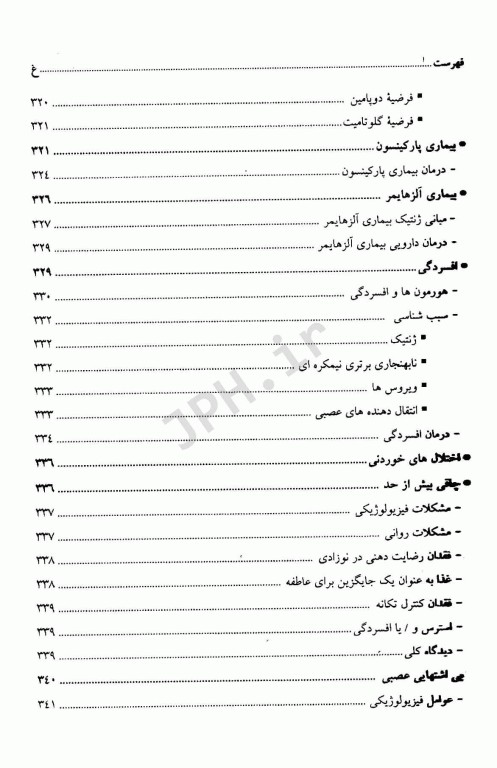 فهرست ............ غ
▪ فرضیهٔ دوپامین ............ ۳۲۰
▪ فرضیهٔ گلوتامیت ............ ۳۲۱
● بیماری پارکینسون ............ ۳۲۱
- درمان بیماری پارکینسون ............ ۳۲٤
● بیماری آلزهایمر ............ ۳۲٦
- مبانی ژنتیک بیماری آلزهایمر ............ ۳۲۷
- درمان دارویی بیماری آلزهایمر ............ ۳۲۹
● افسردگی ............ ۳۲۹
- هورمون ها و افسردگی ............ ۳۳۰
- سبب شناسی ............ ۳۳۲
▪ ژنتیک ............ ۳۳۲
▪ نابهنجاری برتری نیمکره ای ............ ۳۳۲
▪ ویروس ها ............ ۳۳۳
▪ انتقال دهنده های عصبی ............ ۳۳۳
- درمان افسردگی ............ ۳۳٤
● اختلال های خوردنی ............ ۳۳٦
● چاقی بیش از حد ............ ۳۳٦
- مشکلات فیزیولوژیکی ............ ۳۳۷
- مشکلات روانی ............ ۳۳۷
- فقدان رضایت دهنی در نوزادی ............ ۳۳۸
- غذا به عنوان یک جایگزین برای عاطفه ............ ۳۳۸
- فقدان کنترل تکانه ............ ۳۳۹
- استرس و / یا افسردگی ............ ۳۳۹
- دیدگاه کلی ............ ۳۳۹
بی اشتهایی عصبی ............ ۳٤۰
- عوامل فیزیولوژیکی ............ ۳٤۱
JPH.ir